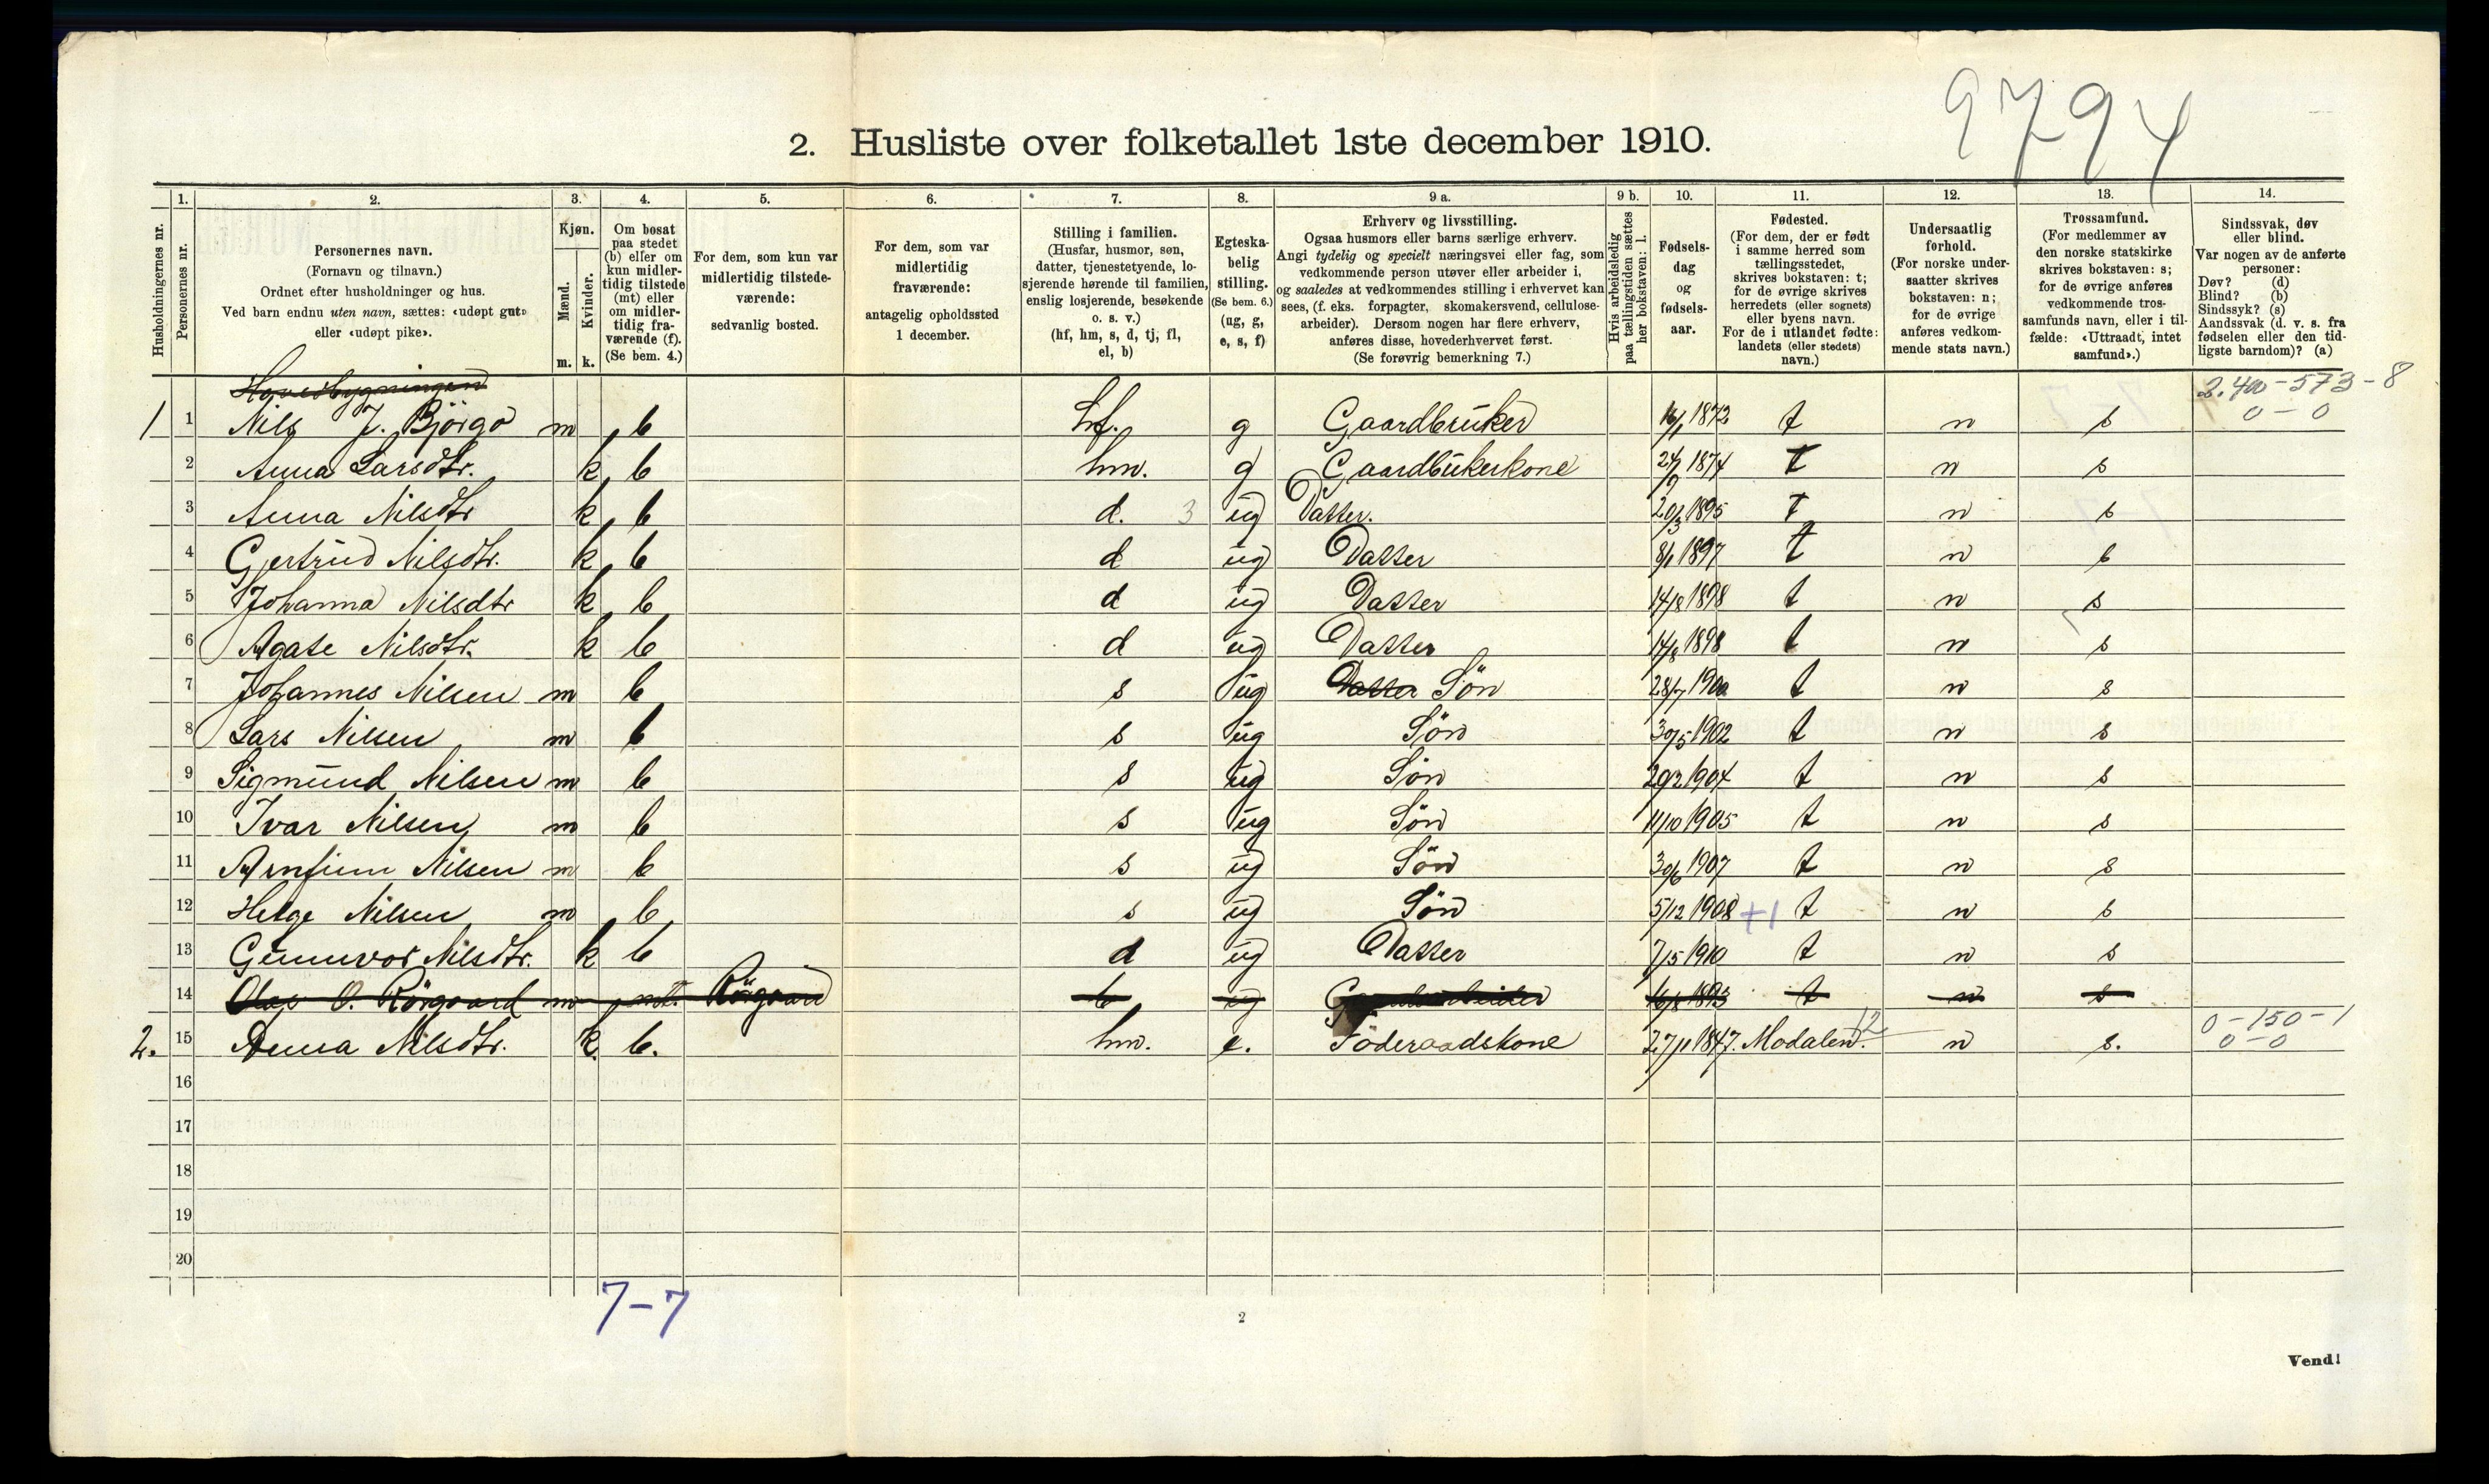 9794
2. Husliste over folketallet 1ste december 1910.
Husholdningernes nr.
1. Personernes nr.
2. Personernes navn. (Fornavn og tilnavn.) Ordnet efter husholdninger og hus. Ved barn endnu uten navn, sættes: «udøpt gut» eller «udøpt pike».
3. Kjøn. Mænd. m. Kvinder. k.
4. Om bosat paa stedet (b) eller om kun midlertidig tilstede (mt) eller om midlertidig fraværende (f). (Se bem. 4.)
5. For dem, som kun var midlertidig tilstedeværende: sedvanlig bosted.
6. For dem, som var midlertidig fraværende: antagelig opholdssted 1 december.
7. Stilling i familien. (Husfar, husmor, søn, datter, tjenestetyende, losjerende hørende til familien, enslig losjerende, besøkende o. s. v.) (hf, hm, s, d, tj, fl, el, b)
8. Egteskabelig stilling. (Se bem. 6.) (ug, g, e, s, f)
9 a. Erhverv og livsstilling. Ogsaa husmors eller barns særlige erhverv. Angi tydelig og specielt næringsvei eller fag, som vedkommende person utøver eller arbeider i, og saaledes at vedkommendes stilling i erhvervet kan sees, (f. eks. forpagter, skomakersvend, cellulosearbeider). Dersom nogen har flere erhverv, anføres disse, hovederhvervet først. (Se forøvrig bemerkning 7.)
9 b. Hvis arbeidsledig paa tællingstiden sættes her bokstaven: l.
10. Fødselsdag og fødselsaar.
11. Fødested. (For dem, der er født i samme herred som tællingsstedet, skrives bokstaven: t; for de øvrige skrives herredets (eller sognets) eller byens navn. For de i utlandet fødte: landets (eller stedets) navn.)
12. Undersaatlig forhold. (For norske undersaatter skrives bokstaven: n; for de øvrige anføres vedkommende stats navn.)
13. Trossamfund. (For medlemmer av den norske statskirke skrives bokstaven: s; for de øvrige anføres vedkommende trossamfunds navn, eller i tilfælde: «Uttraadt, intet samfund».)
14. Sindssvak, døv eller blind. Var nogen av de anførte personer: Døv? (d) Blind? (b) Sindssyk? (s) Aandssvak (d. v. s. fra fødselen eller den tidligste barndom)? (a)
Hovedbygningen
2.400-573-8
1 1 Nils J. Björgo m b hf. g Gaardbruker 16/1 1872 t n s 0-0
2 Anna Larsdtr. k b hm. g Gaardbukerkone 1874 t n s
3 Anna Nilsdtr k b d. 3 ug Datter. 20/3 1895 t n s
4 Gjertrud Nilsdtr. k b d ug Datter 8/1 1897 t n s
5 Johanna Nilsdtr k b d ug Datter 14/8 1898 t n s
6 Agate Nilsdtr. k b d ug Datter 14/8 1898 t n s
7 Johannes Nilsen m b s ug Datter Sön 28/7 1900 t n s
8 Lars Nilsen m b s ug Sön 30/5 1902 t n s
9 Sigmund Nilsen m b s ug Sön 29/2 1904 t n s
10 Ivar Nilsen m b s ug Sön 11/10 1905 t n s
11 Arnfinn Nilsen m b s ug Sön 30/6 1907 t n s
12 Helge Nilsen m b s ug Sön 5/12 1908 +1 t n s
13 Gunnvor Nilsdtr. k b d ug Datter 7/5 1910 t n s
14 Olav O. Rörgaard m mt. Rörgaard b ug 16/8 1893 t n s
0-150-1
2. 15 Anna Nilsdtr. k. b. hm. e. Föderaadskone 27/11 1847. Modalen. 12 n s. 0-0
16
17
18
19
20
7-7
2
Vend!